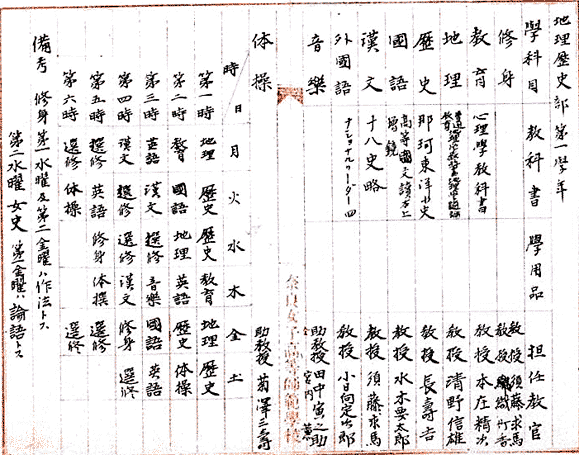 地理歴史部第一學年
學科目 教科書 學用品 担任教官
修身 教授 須藤求馬
教育 心理學教科書 教授 本庄精次
地理 教授 清野信雄
歴史 那珂東洋小史 教授 長壽吉
國語 高等國文讀本上 増鏡 教授 水木要太郎
漢文 十八史略 教授 須藤求馬
外國語 ナショナルリーダー四 教授 小日向定次郎
音樂 助教授 田中寅之助
奈良女子高等師範學校
体操 助教授 菊澤三壽
時 日 月 火 水 木 金 土
第一時 地理 歴史 歴史 教育 地理 歴史
第二時 教育 國語 地理 英語 歴史 体操
第三時 英語 漢文 選修 音樂 國語 英語
第四時 漢文 選修 選修 漢文 修身 選修
第五時 選修 英語 修身 体操 選修
第六時 選修 体操 選修
備考 修身第一水曜及第二金曜ハ作法トス
第二水曜女史 第一金曜ハ論語トス